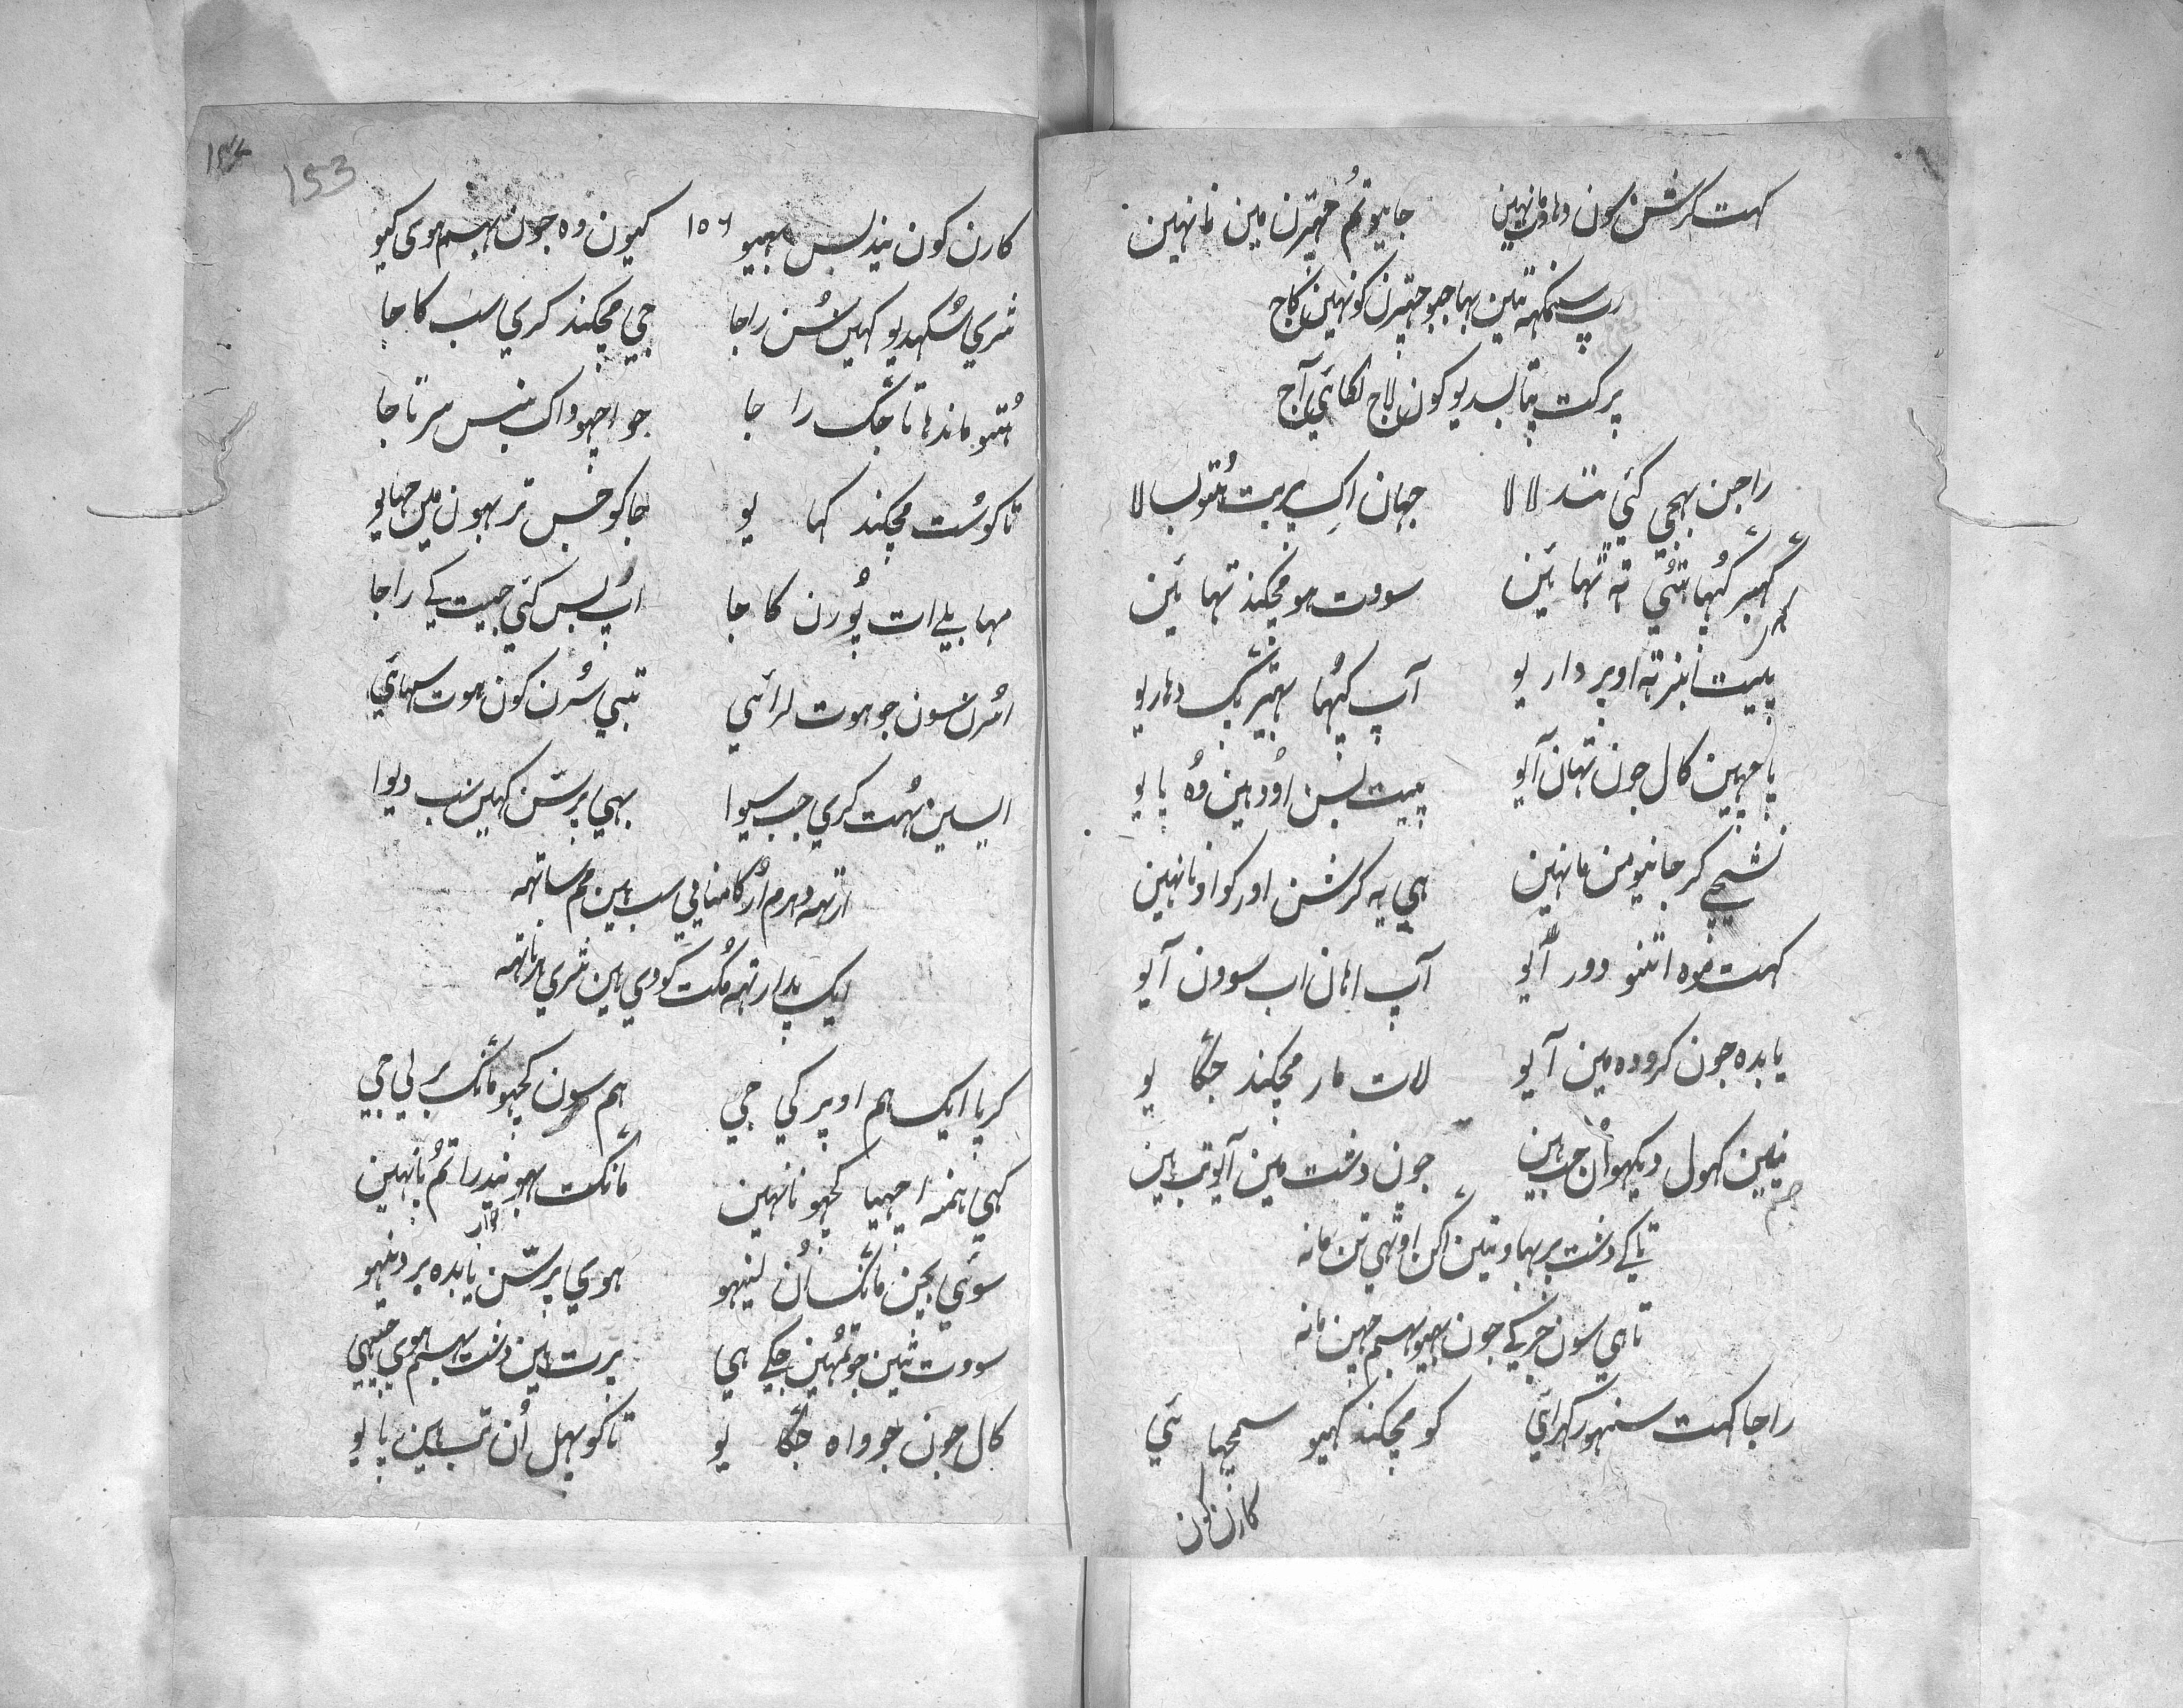 کہت کرشن سون دھاوت مانہین جایو تُم چھترن مین نانہین
رپ سنمکہہ تین بہاجبو چھترن کو نہین کاج
پرکٹ پتا بسدیو کون لاج لگائی آج
راجن بہجی گئی نند لالا جہان اک پربت ہُتو بسالا
گہبر گپہا ہُتی تہ ٹھائین سووت ہو مچکند تہائین
پیت انبر تہ اوپر داریو آپ گپہا بہیتر پگ دھاریو
پاچھین کال جون تہان آیو پیت بسن اوڑھین وہ پایو
نشچی کر جانیو من مانہین ہی یہ کرشن اور کواو نانہین
کہت موہ اتنو دور آیو آپ اہان اب سوون آیو
یا بدہ جون کرودہ مین آیو لات مار مچکند جگایو
نین کہول دیکہو اُن جب ہین جون دشت مین آیو تب ہین
تاکے دشت پربہاو تین اگن اوٹھی تن مانہ
تاہی سون جر کے جون بہیو بہسم چھن مانہ
راجا کہت سنہو رکہرائی کو مچکند کہیو سمجہائی
کارن کون
153
کارن کون نیند بس بہیو ١٥٦ کیون وہ جون بہسم ہوی گیو
شری سُکہدیو کہین سُن راجا جی مچکند کری سب کاجا
ہُتو ماندھاتا جگ راجا جو اچھواک بنس سرتاجا
تاکو سُت مچکند کہایو جاکو جس تربہون مین چھایو
مہابلے ات پُورن کاجا اپ بس کئی جیت کے راجا
اسُرن سون جو ہوت لرائی تبی سُرن کون ہوت سہائی
ایسین بہُت کری جب سیوا بہی پرسن کہین سب دیوا
ارتہہ دہرم اُر کامنا یی سب ہین ہم ساتہہ
ایک پدارتہہ مُکت کو دی ہین شری ہرناتہہ
کرپا ایک ہم اوپر کی جی ہم سون کچھو مانگ بر لی جی
کہی ہمنہ اچھیا کچھو نانہین مانگت ہو نیندرا تُم پانہین
سوئی بچن مانگ اُن لینہو ہوی پرسن یا بدہ بر دینہو
سووت تین جو تُمہین جگے ہی پرت ہین دشت بہسم ہوی جیہی
کال جون جو واہ جگایو تاکو پہل اُن تب ہین پایو